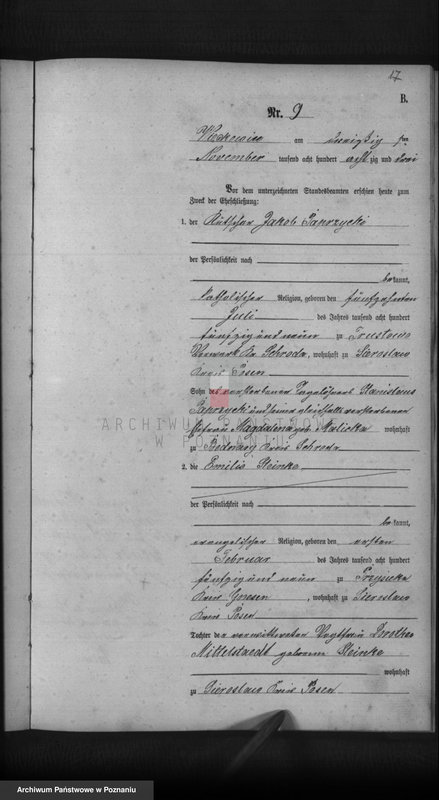 17
B.
Nr. 9
am dreißig sten
November tausend acht hundert acht zig und drei
Vor dem unterzeichneten Standesbeamten erschien heute zum
Zweck der Eheschließung:
1. der Kutscher Jakob Paprzycki
der Persönlichkeit nach
be kannt,
katholischer Religion, geboren den fünfzehnten
Juli des Jahres tausend acht hundert
fünfzig und neun zu
Vorwerk Kr. Schroda, wohnhaft zu Sieroslaw
Kreis Posen
Sohn des verstorbenen Stanislaus
Paprzycki und seiner gleichfalls verstorbenen
Ehefrau Magdalena geb. Malicka wohnhaft
zu Bednary Kreis Schroda
ARCHIWUM PAŃSTWOWE
W POZNANIU
2. die Emilie Steinke
der Persönlichkeit nach
be kannt,
evangelischer Religion, geboren den ersten
Februar des Jahres tausend acht hundert
fünfzig und neun zu
Kreis Gnesen, wohnhaft zu Sieroslaw
Kreis Posen
Tochter der verwittweten Vogtfrau Dorothea
Mittelstaedt geborene Steinke
wohnhaft
zu Sieroslaw Kreis Posen
Archiwum Państwowe w Poznaniu